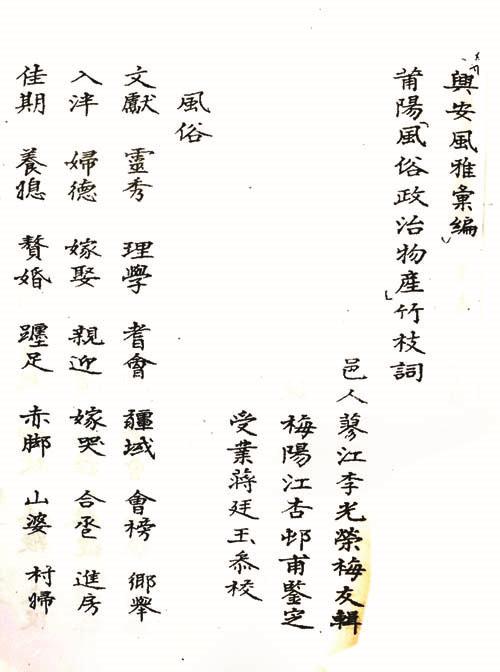 興安風雅彙編
莆陽「風俗政治物產」竹枝詞
邑人蓼江李光榮梅友輯
梅陽江杏邨甫鑒定
受業蔣廷玉叅校
風俗
文獻 靈秀 理學 耆會 疆域 會榜 鄉舉
入泮 婦德 嫁娶 親迎 嫁哭 合卺 進房
佳期 養媳 贅婚 躔足 赤脚 山婆 村婦